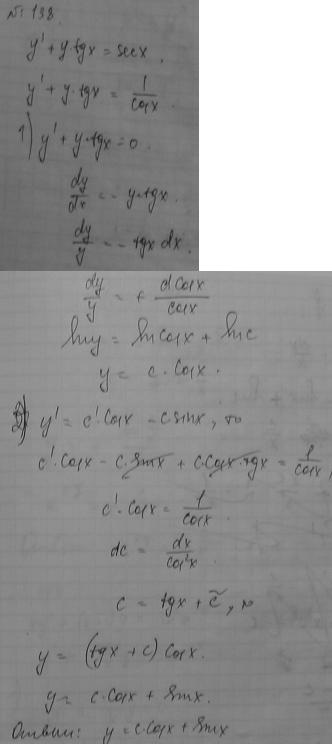 № 138.
y' + y·tgx = secx.
y' + y·tgx = 1/cosx.
1) y' + y·tgx = 0.
dy/dx = - y·tgx.
dy/y = - tgx dx.
dy/y = + dcosx/cosx
lny = lncosx + lnc
y = c·cosx.
2) y' = c'·cosx - c sinx, то
c'·cosx - c·sinx + c·cosx·tgx = 1/cosx,
c'·cosx = 1/cosx.
dc = dx/cos²x.
c = tgx + c̃, то
y = (tgx + c) cosx.
y = c·cosx + sinx.
Ответ: y = c·cosx + sinx